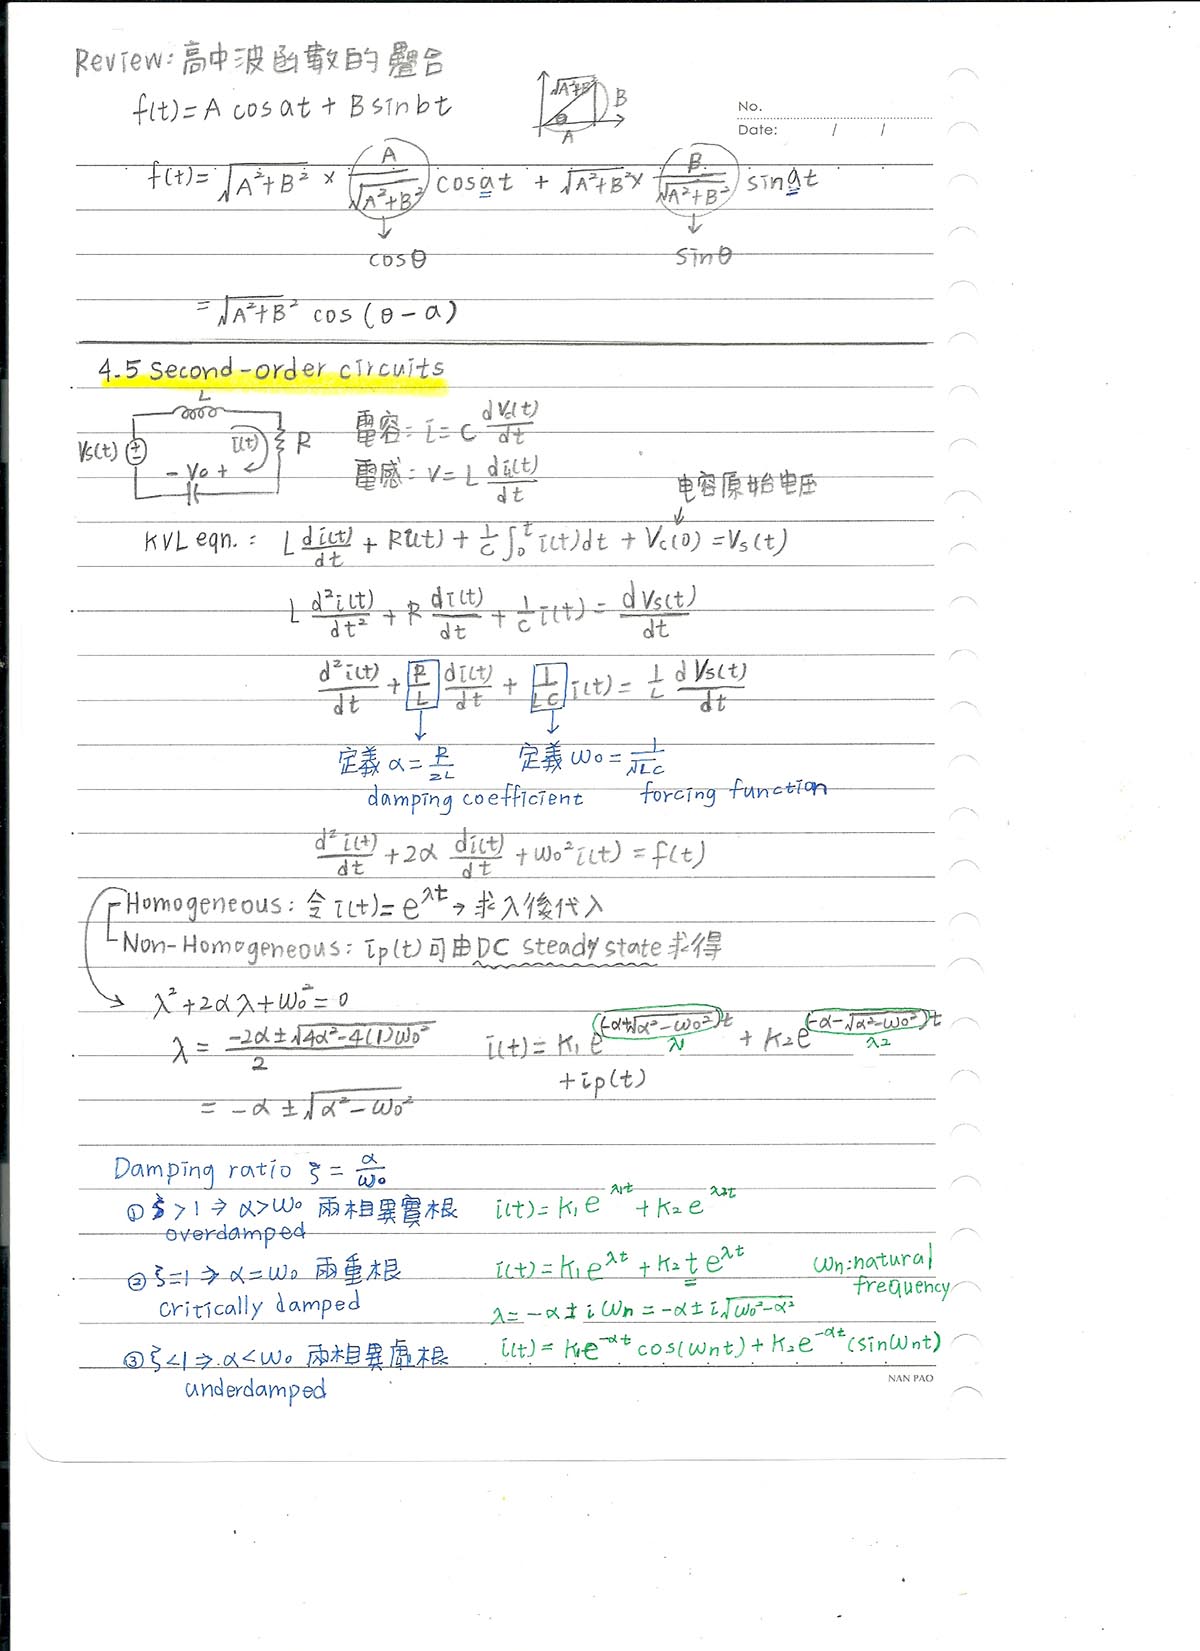 Review: 高中波函數的疊合
f(t) = A cosat + B sinbt
√A²+B² B
θ
A
No.
Date: / /
f(t) = √A²+B² × A/√A²+B² cosat + √A²+B² × B/√A²+B² sinat
↓ ↓
cosθ sinθ
= √A²+B² cos(θ-a)
4.5 Second-order circuits
L
Vs(t) + - i(t) R
- Vo +
電容: i = C dVc(t)/dt
電感: V = L diL(t)/dt
电容原始电压
KVL eqn. : L di(t)/dt + Ri(t) + 1/C ∫₀ᵗ i(t)dt + Vc(0) = Vs(t)
L d²i(t)/dt² + R di(t)/dt + 1/C i(t) = dVs(t)/dt
d²i(t)/dt + R/L di(t)/dt + 1/LC i(t) = 1/L dVs(t)/dt
定義 α = R/2L 定義 ω₀ = 1/√LC
damping coefficient forcing function
d²i(t)/dt + 2α di(t)/dt + ω₀² i(t) = f(t)
Homogeneous: 令 i(t) = e^λt → 求λ後代入
Non-Homogeneous: ip(t) 可由 DC steady state 求得
λ² + 2αλ + ω₀² = 0
λ = -2α ± √4α²-4(1)ω₀² / 2 i(t) = K₁e^(-α+√α²-ω₀²)t + K₂e^(-α-√α²-ω₀²)t
λ₁ λ₂
+ ip(t)
= -α ± √α²-ω₀²
Damping ratio ζ = α/ω₀
① ζ > 1 ⇒ α > ω₀ 兩相異實根 i(t) = K₁e^λ₁t + K₂e^λ₂t
overdamped
② ζ = 1 ⇒ α = ω₀ 兩重根 i(t) = K₁e^λt + K₂te^λt ωn: natural
critically damped frequency
λ = -α ± iωn = -α ± i√ω₀²-α²
③ ζ < 1 ⇒ α < ω₀ 兩相異虛根 i(t) = K₁e^-αt cos(ωnt) + K₂e^-αt (sinωnt)
underdamped
NAN PAO